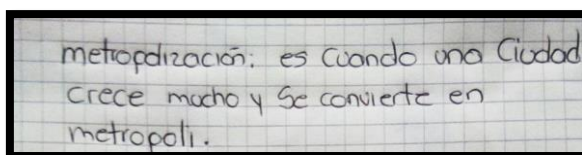 metropolización: es cuando una Ciudad
crece mucho y se convierte en
metropoli.